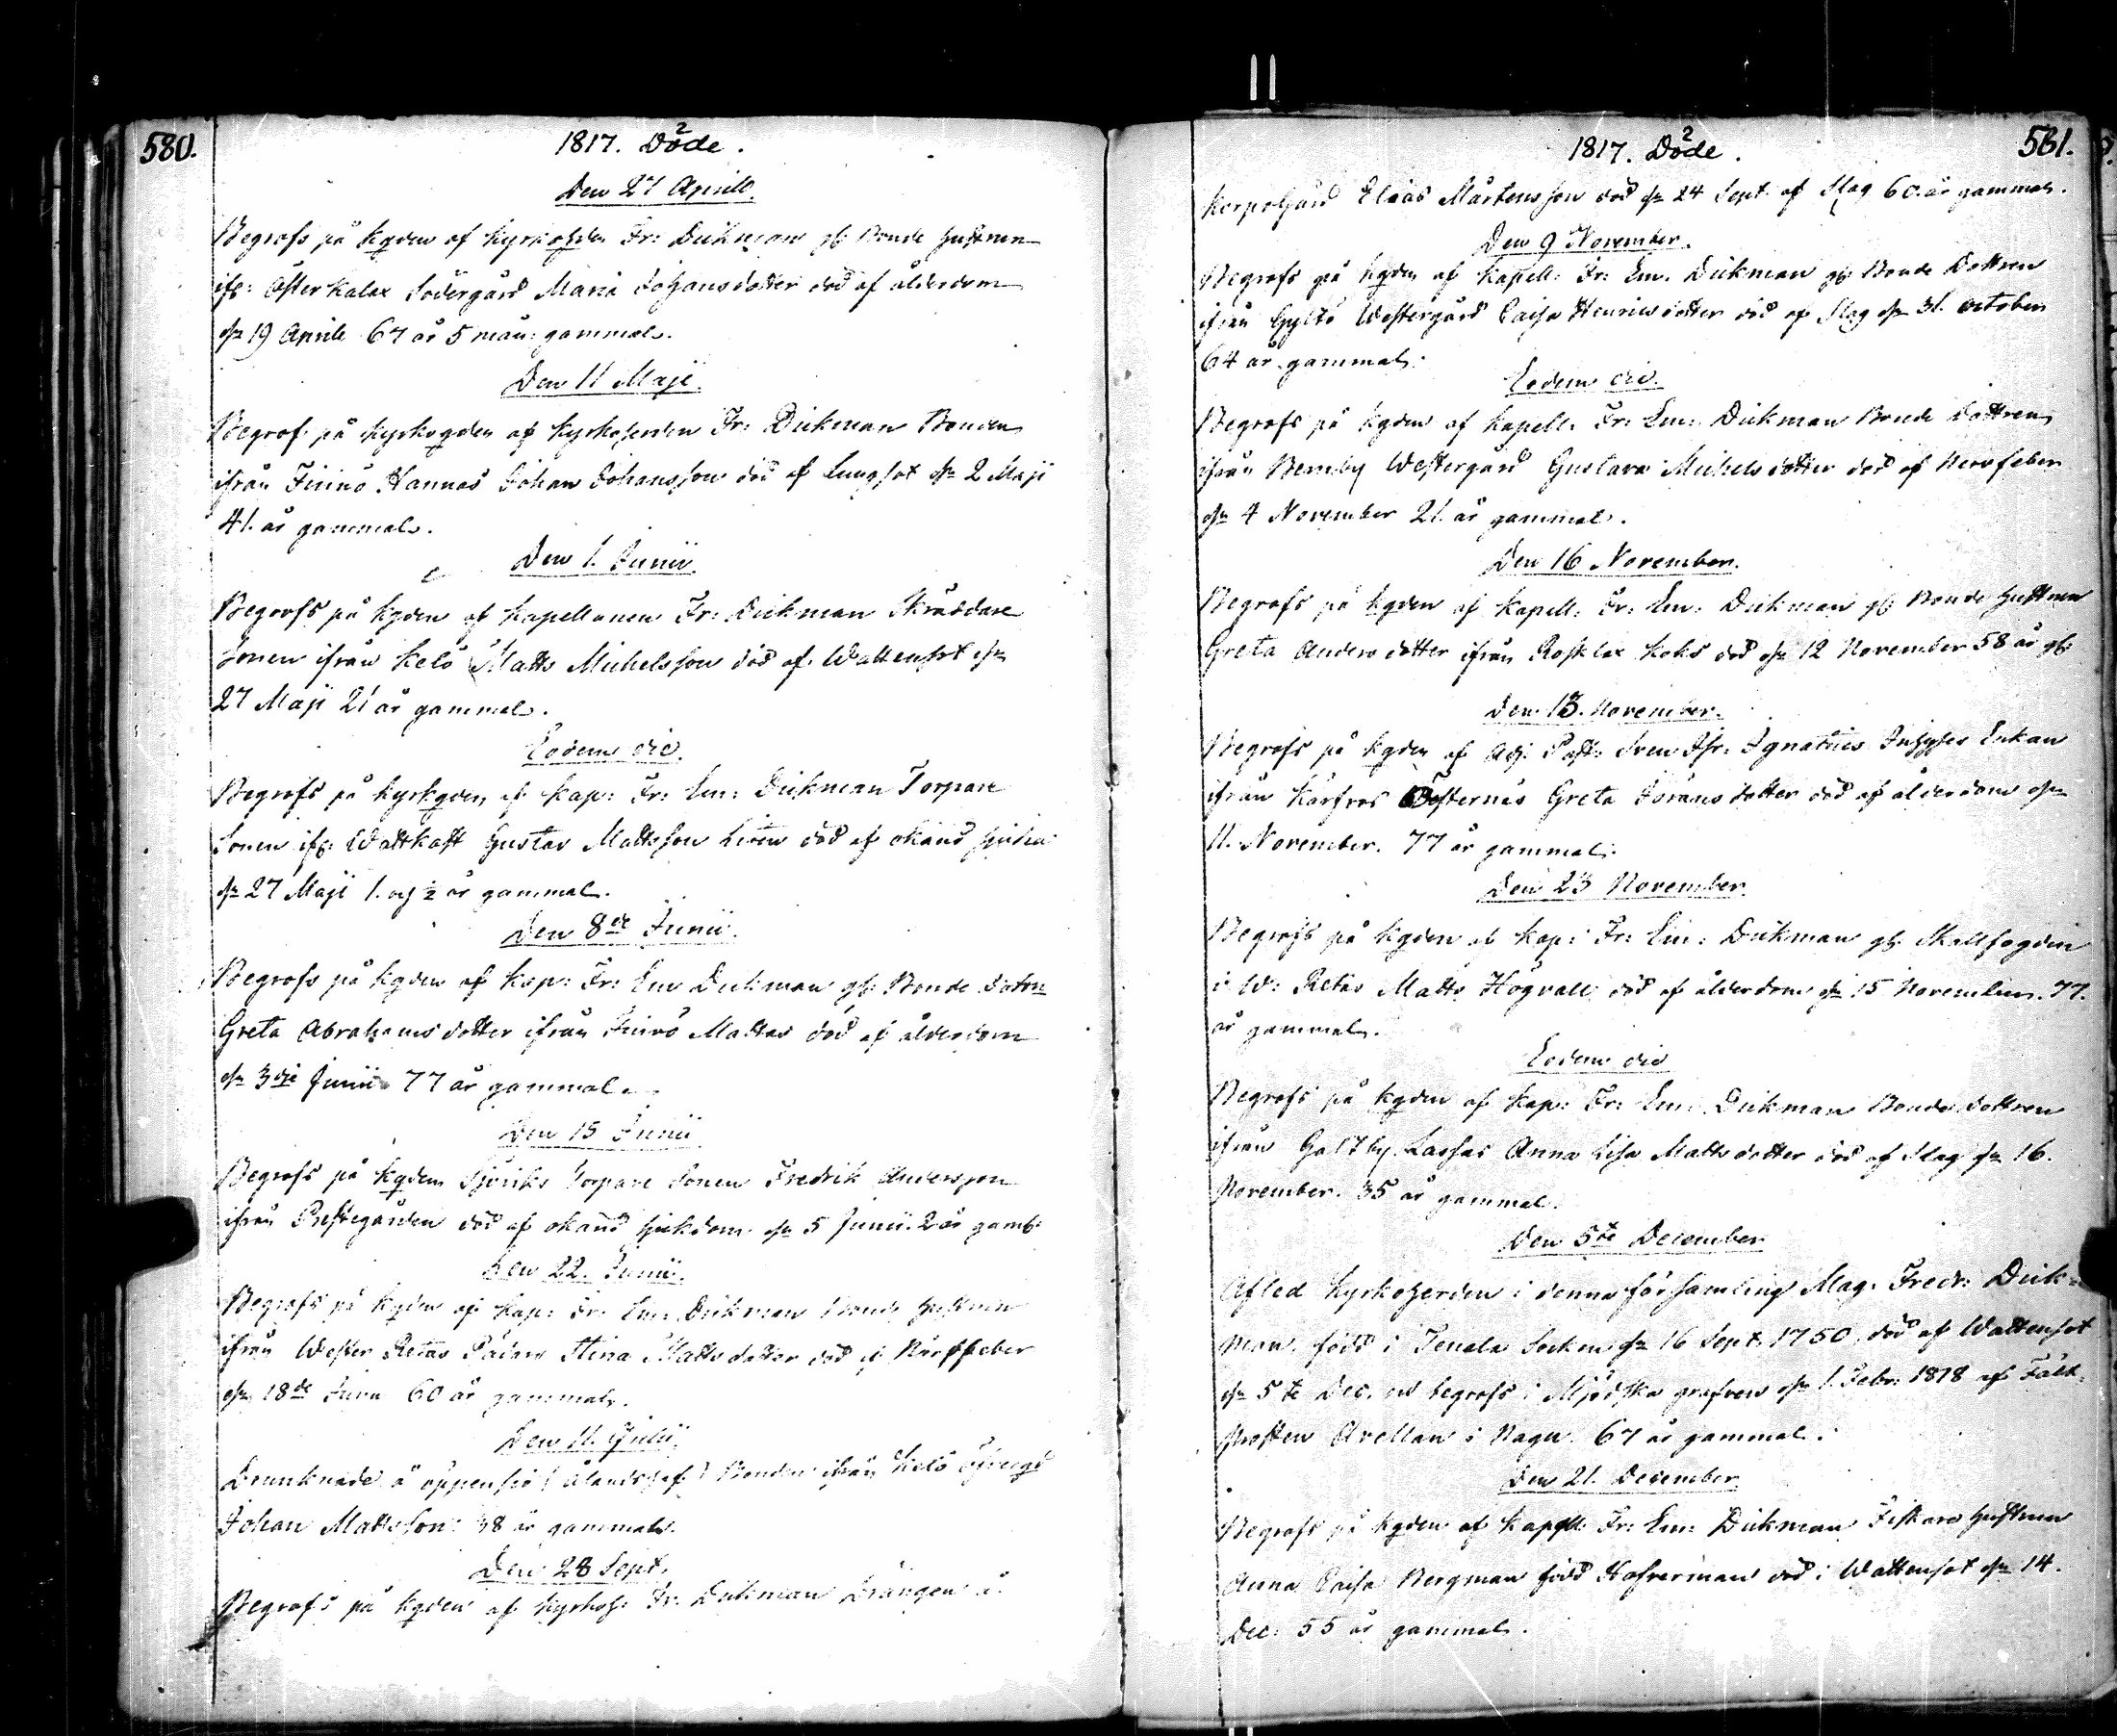 580.
1817. Döde.
Den 27 Aprill.
Begrofs på Kgden af Kyrkohden Fr: Dickman gl: Bonde Hustrun
ifr: Österkalax Södergård Maria Johansdotter död af ålderdom
dn 19 Aprile 67 år 5 mån: gammal.
Den 11 Maji.
Begrof på Kyrkogden af Kyrkoherden Fr: Dickman Bonden
ifrån Finnö Hannas Johan Johansson död af Lungsot dn 2 Maji
41. år gammal.
Den 1. Junii.
Begrofs på Kgden af Kapellanen Fr: Dickman Skräddare
Sonen ifrån Kelö Matts Michelsson död af Wattensot dn
27 Maji 21 år gammal.
Eodem die.
Begrofs på Kyrkgden af Kap: Fr: Em: Dickman Torpare
Sonen ifr: Wattkast Gustav Mattsson död af okänd
dn 27 Maji 1. och ½ år gammal.
Den 8de Junii.
Begrofs på Kgden af Kap: Fr: Em Dickman gl: Bonde
Greta Abrahamsdotter ifrån Finnö Mattas död af ålderdom
dn 3dje Junii 77 år gammal.
Den 15 Junii
Begrofs på Kgden Torpare Sonen Fredrik Andersson
ifrån Prestegården död af okänd sjukdom dn 5 Junii. 2 år gaml:
Den 22. Junii.
Begrofs på Kgden af Kap: Fr: Em: Dickman Bonde Hustrun
ifrån Wester Retais Pädars Stina Mattsdotter död af
dn 18de Junii 60 år gammal.
Den 11. Julii.
Drunknade å öppen sjö (Ålandshaf) Bonden ifrån Kelö
Johan Mattsson: 38 år gammal.
Den 28 Sept.
Begrofs på Kgden af Kyrkoh: Fr: Dickman Drängen å
1817. Döde.
581.
Korpogård Elias Mårtensson död dn 24 Sept. af Slag 60. år gammal.
Den 9 November.
Begrofs på Kgden af Kapell: Fr: Em. Dickman gl: Bonde Dottren
ifrån Gyltö Westergård Caisa Henricsdotter död af Slag dn 31. October
64 år gammal.
Eodem die.
Begrofs på Kgden af Kapell: Fr: Em: Dickman Bonde Dottren
ifrån Bemby Westergård Gustava Michelsdotter död af Nervfeber
dn 4 November 21. år gammal.
Den 16 November.
Begrofs på Kgden af Kapell: Fr: Em: Dickman gl: Bonde Hustrun
Greta Andersdotter ifrån Rosklax Koks död dn 12 November 58 år gl:
Den 13. November.
Begrofs på Kgden af Adj: Past: Sven Joh: Ignatius Inhyses Enkan
ifrån Greta Göransdotter död af ålderdom dn
11. November. 77 år gammal.
Den 23 November.
Begrofs på Kgden af Kap: Fr: Em: Dickman gl: Skallfogden
i W: Retais Matts Högvall död af ålderdom dn 15 November. 77.
år gammal.
Eodem die
Begrofs på Kgden af Kap: Fr: Em: Dickman Bonde Dottren
ifrån Galtby Lassas Anna Lisa Mattsdotter död af Slag dn 16.
November. 35 år gammal.
Den 5te December
Afled Kyrkoherden i denna församling Mag. Fredr: Dick-
man, född i Tenala Socken dn 16 Sept. 1750, död af Wattensot
dn 5te Dec. begrofs i grafven dn 1. Febr: 1818 af Fält-
prosten Avellan i Nagu 67 år gammal.
Den 21. December
Begrofs på Kgden af Kapell: Fr: Em: Dickman Fiskare Hustrun
Anna Caisa Bergman född död i Wattensot dn 14.
Dec: 55 år gammal.